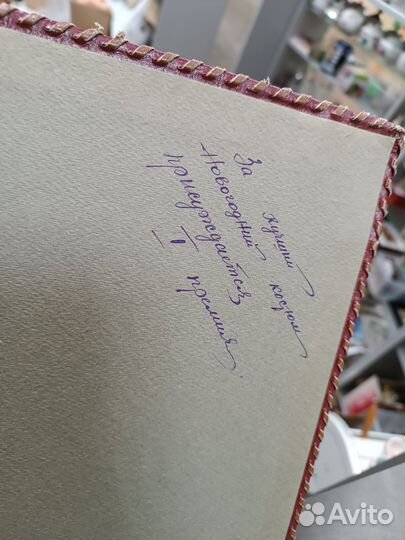 За лучший
Новогодний костюм
присуждается
I премия.
Avito